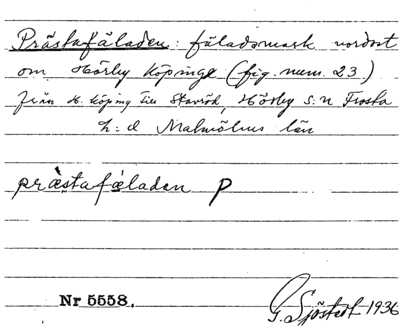 Prästafäladen: fäladsmark nordost
om Hörby köpinge (fig. num. 23)
från H. köping till Stavröd, Hörby s:n Frosta
h:d Malmöhus län
præstafæladen P
Nr 5558.
G. Sjöstedt 1936